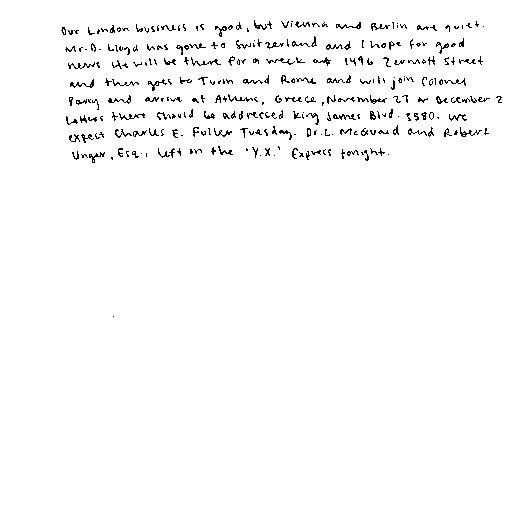 Our London business is good, but Vienna and Berlin are quiet.
Mr. D. Lloyd has gone to Switzerland and I hope for good
news. He will be there for a week at 1496 Zermott Street
and then goes to Turin and Rome and will join Colonel
Parry and arrive at Athens, Greece, November 27 or December 2
Letters there should be addressed King James Blvd. 3580. We
expect Charles E. Fuller Tuesday. Dr. L. McQuaid and Robert
Unger, Esq., left on the 'Y.X.' Express tonight.